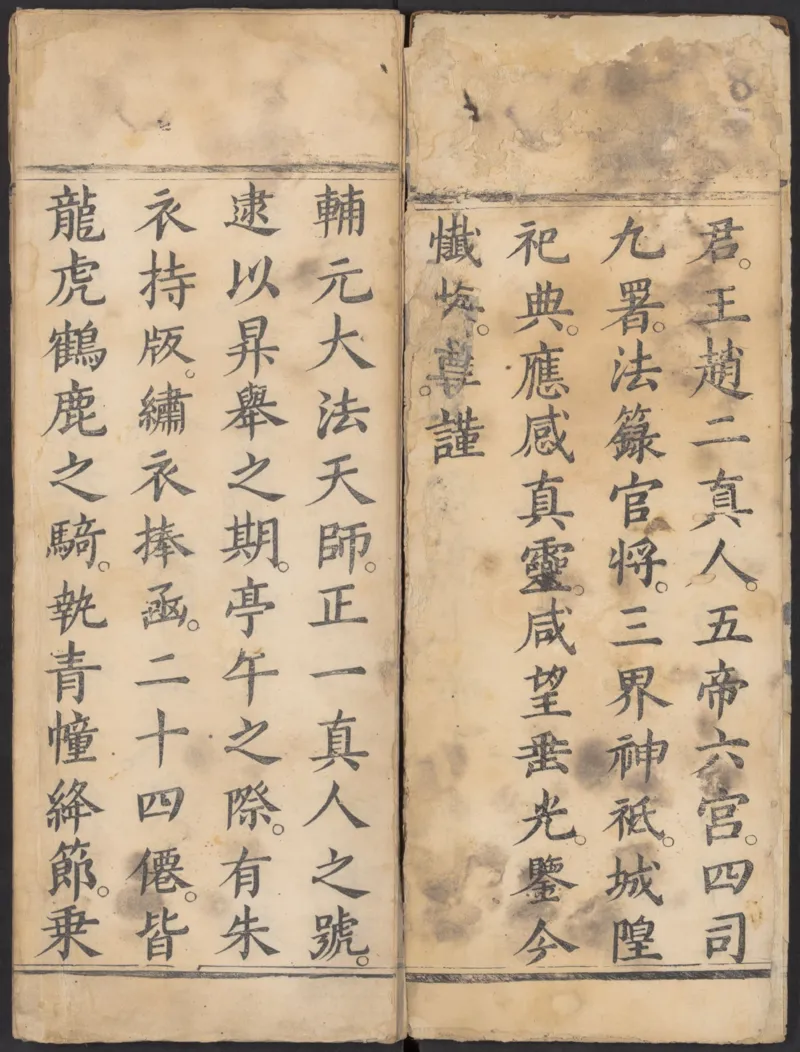 君。王趙二真人。五帝六宫。四司
九署。法籙官将。三界神祗。城隍
祀典。應感真靈。咸望垂光。鑒今
懺悔。尊。謹
輔元大法天師。正一真人之號。
逮以昇舉之期。亭午之際。有朱
衣持版。繡衣捧函。二十四僊。皆
龍虎鶴鹿之騎。執青幢絳節。乗